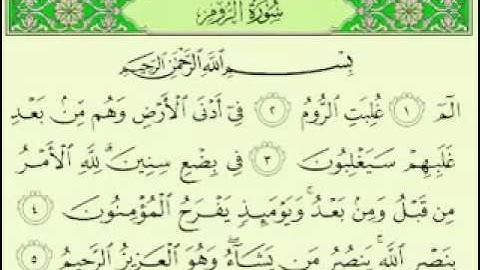 سُورَةُ الرُّومِ
بِسْمِ اللَّهِ الرَّحْمَٰنِ الرَّحِيمِ
الٓمٓ ١ غُلِبَتِ ٱلرُّومُ ٢ فِىٓ أَدْنَى ٱلْأَرْضِ وَهُم مِّنۢ بَعْدِ
غَلَبِهِمْ سَيَغْلِبُونَ ٣ فِى بِضْعِ سِنِينَ ۗ لِلَّهِ ٱلْأَمْرُ
مِن قَبْلُ وَمِنۢ بَعْدُ ۚ وَيَوْمَئِذٍ يَفْرَحُ ٱلْمُؤْمِنُونَ ٤
بِنَصْرِ ٱللَّهِ ۚ يَنصُرُ مَن يَشَآءُ ۖ وَهُوَ ٱلْعَزِيزُ ٱلرَّحِيمُ ٥